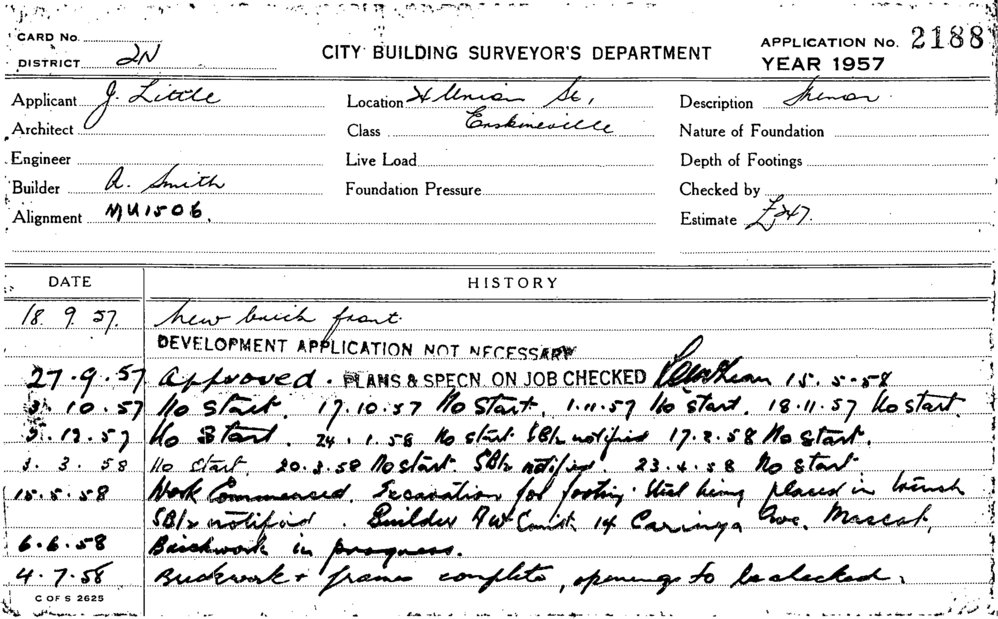 CARD No.
DISTRICT 2N
CITY BUILDING SURVEYOR'S DEPARTMENT
APPLICATION No. 2188
YEAR 1957
Applicant J. Little
Location Union St,
Description
Architect
Class Erskineville
Nature of Foundation
Engineer
Live Load
Depth of Footings
Builder A. Smith
Foundation Pressure
Checked by
Alignment MU1506.
Estimate £247.
DATE HISTORY
18. 9. 57. New brick front.
DEVELOPMENT APPLICATION NOT NECESSARY
27.9.57 Approved. PLANS & SPECN. ON JOB CHECKED 15.5.58
3.10.57 No Start. 17.10.57 No Start. 1.11.57 No Start. 18.11.57 No Start.
3.12.57 No Start. 24.1.58 No start. notified 17.2.58 No Start.
3.3.58 No start. 20.3.58 No start. notified. 23.4.58 No Start.
15.5.58 Work Commenced. Excavation for footing. Steel being placed in trench
notified. Builder 14 Caringa Ave. Mascot.
6.6.58 Brickwork in progress.
4.7.58 Brickwork + frames complete, openings to be checked.
C OF S 2625